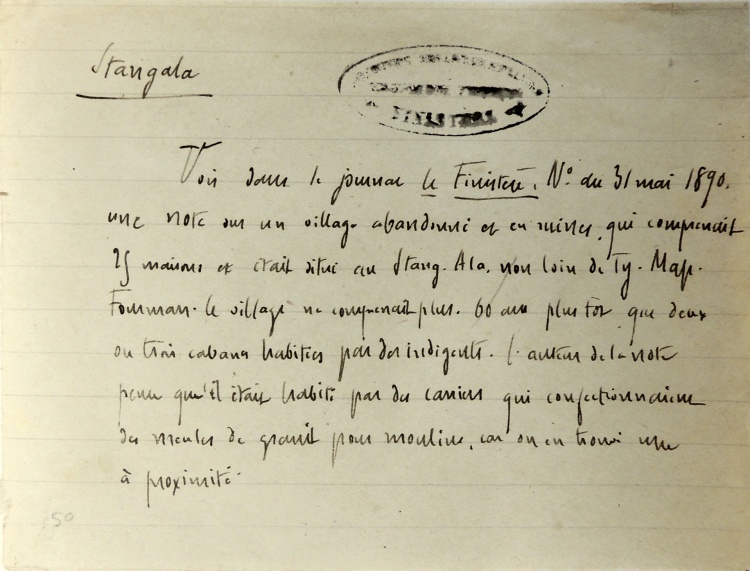 Stangala
FINISTÈRE
Voir dans le journal le Finistère. N° du 31 mai 1890.
une note sur un village abandonné et en ruines, qui comprenait
25 maisons et était situé au Stang-Ala, non loin de Ty-Map-
Formman. le village ne comprenait plus. 60 ans plus tôt que deux
ou trois cabanes habitées par des indigents. l'auteur de la note
pense qu'il était habité par des carriers qui confectionnaient
des meules de granit pour moulins, car on en trouve une
à proximité.
50